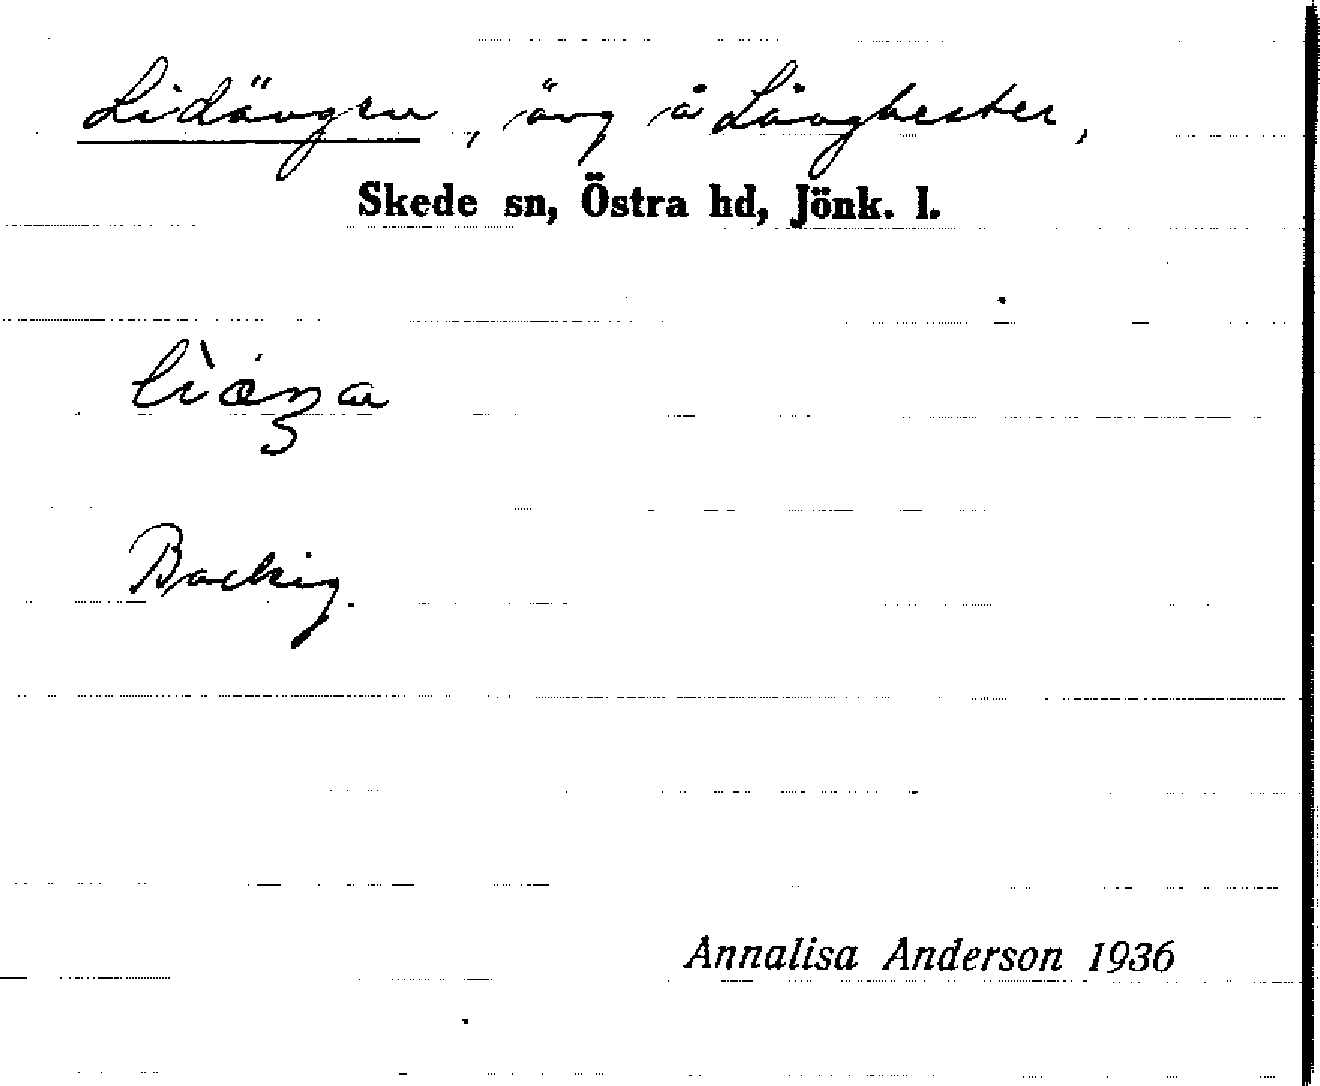 Lidängen, äng å Långhester,
Skede sn, Östra hd, Jönk. l.
Backig.
Annalisa Anderson 1936